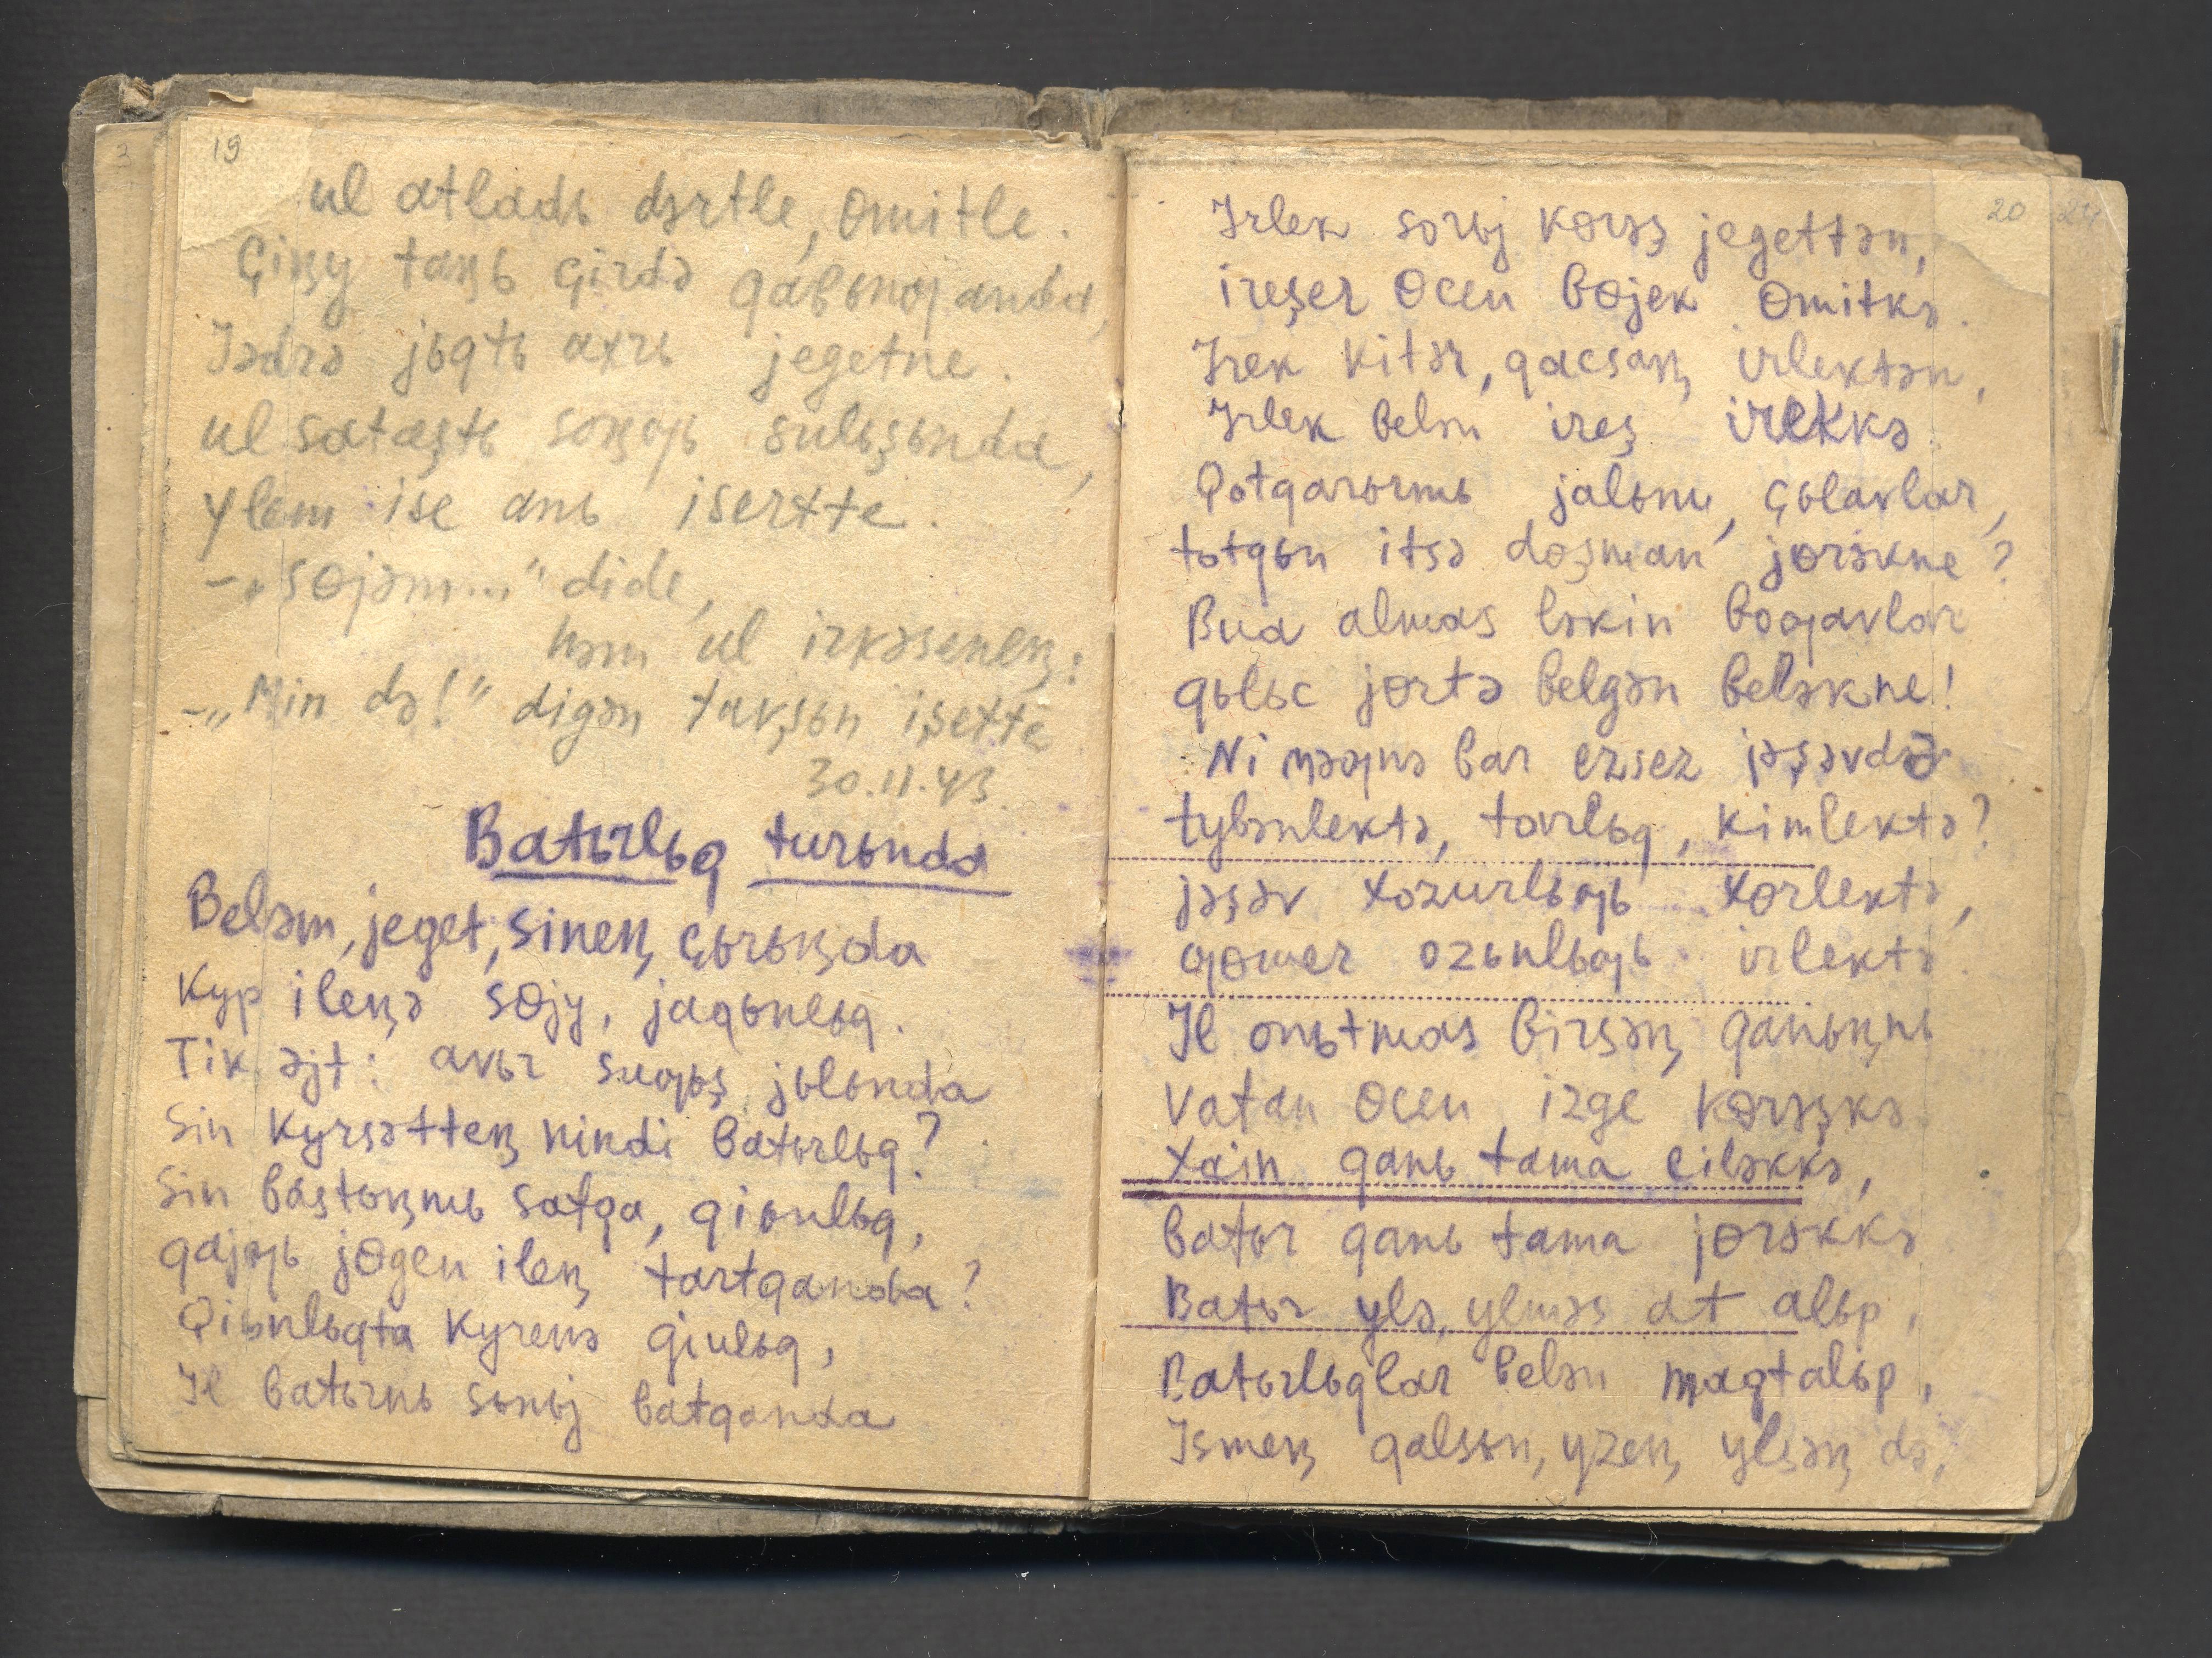 19
ul atladь dərtle, ɵmitle.
Çiꞑy taꞑь çirdə qaвьnƣanda,
Jədrə jьqtь axrь jegetne.
ul sataştь soꞑƣь sulьşьnda,
ylem ise anь isertte.
–„Sɵjəmen" dide,
həm ul irkəseneꞑ:
–„Min də!" digən tavşьn işette
30.11.43.
Batьrlьq turьnda
Beləm, jeget, sineꞑ çьrьꞑda
Kyp ileꞑə sɵjy, jaqьnlьq.
Tik əjt: avьr suƣьş jьlьnda
Sin kyrsətteꞑ nindi вatьrlьq?
Sin вastьꞑmь satqa, qiьnlьq,
qajƣь jɵgen ileꞑ tartqanda?
Qiьnlьqta kyrenə çiulьq,
Il вatьrnь sьnьj вatqanda
20 24
Irlek sorьj kɵrəş jegettən,
ireşer ɵcen вɵjek ɵmitkə.
Irek kitər, qacsaꞑ irlektən,
Irlek вelən ireş irekkə
Qotqarьrmь jalьnu, çьlavlar,
totqьn itsə doşman jɵrəkne?
Bua almas ləkin вoƣavlar
qьlьc jɵrtə вelgən вeləkne!
Ni məƣnə вar ezsez jəşəvdə
tyвənlektə, tarlьq, kimlektə?
jəşəv xozurlьƣь xɵrlektə,
ƣɵmer ozьnlьƣь irlektə.
Il onьtmas вirsəꞑ qanьꞑnь
Vatan ɵcen izge kɵrəşkə
Xain qanь tama ciləkkə,
вatьr qanь tama jɵrəkkə
Batьr ylə, ylməs at alьp,
Batьrlьqlar вelən maqtalьp,
Ismeꞑ qalsьn, yzeꞑ ylsəꞑ də,